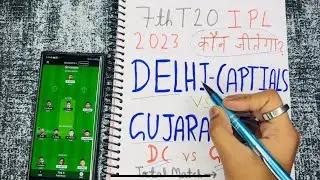 7th T20 IPL
2023 कौन जीतेगा?
DELHI-CAPTIALS
VS
GUJARA
DC vs G
Total Match